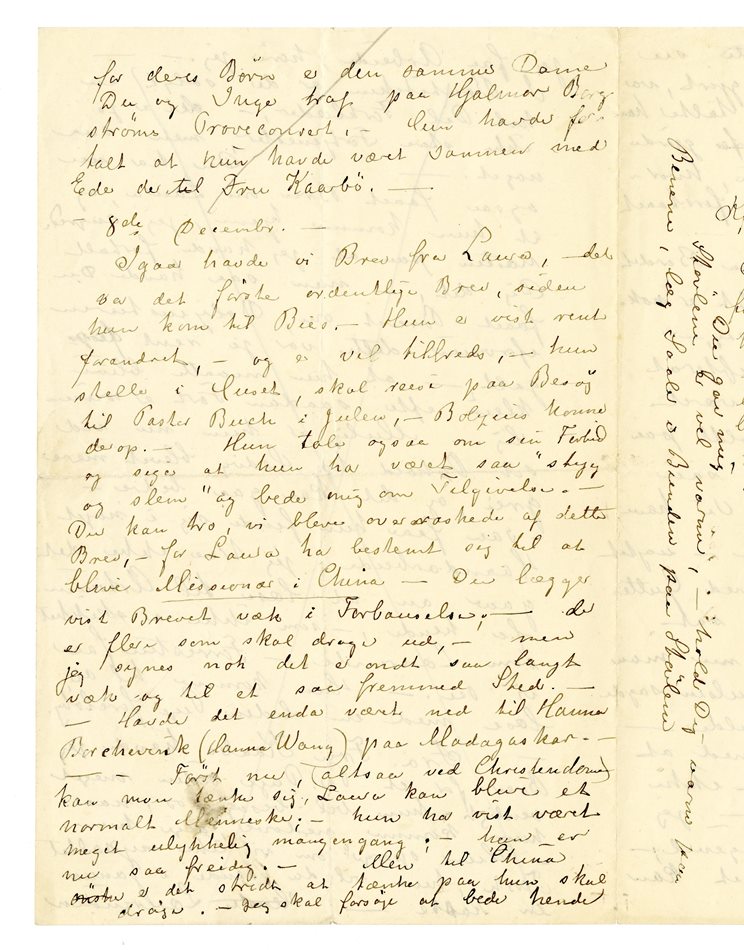 for deres Børn er den samme Dame
Du og Inge traf paa Hjalmar Borg-
strøms Prøveconsert. – Hun havde for-
talt at hun havde været sammen med
Ede der til Fru Kaarbö. —
– 8de Decembr. –
Igaar havde vi Brev fra Laura, – det
va det første ordentlige Brev, siden
hun kom til Bies. – Hun e vist rent
forandret, – og e vel tilfreds, – hun
stelle i Huset, skal reise paa Besøg
til Pastor Buch i Julen, –
derop. – Hun tale ogsaa om sin Fortid
og sige at hun ha været saa "stygg
og slem" og bede mig om Tilgivelse. –
Du kan tro, vi bleve overraskede af dette
Brev, – for Laura ha bestemt sig til at
blive Missionær i China – Du lægger
vist Brevet væk i Forbauselse, – de
er flere som skal drage ud, – men
jeg synes nok det e ondt saa langt
væk og til et saa fremmed Sted. –
– Havde det enda været ned til Hanna
Borchevink (Hanna Wang) paa Madagaskar. –
– – Først nu, (altsaa ved Christendomen)
kan man tænke sig, Laura kan blive et
normalt Menneske; – hun ha vist været
meget ulykkelig mangengang; – hun er
nu saa freidig. – Men til China
e det stridt at tænke paa hun skal
drage. – Jeg skal forsøge at bede hende
Du gav mig
Støvlene er vel varme, – hold Dig varm paa
Benene, læg Saale i Bunden paa Støvlene